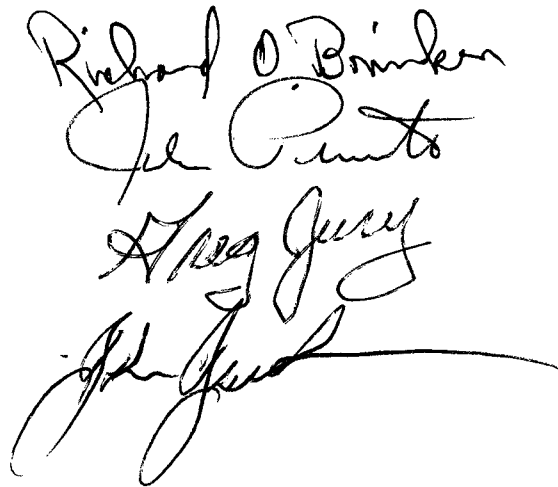 Richard D Brinker
John Pinto
Greg Jury
John